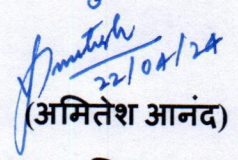 Amitesh
22/04/24
(अमितेश आनंद)